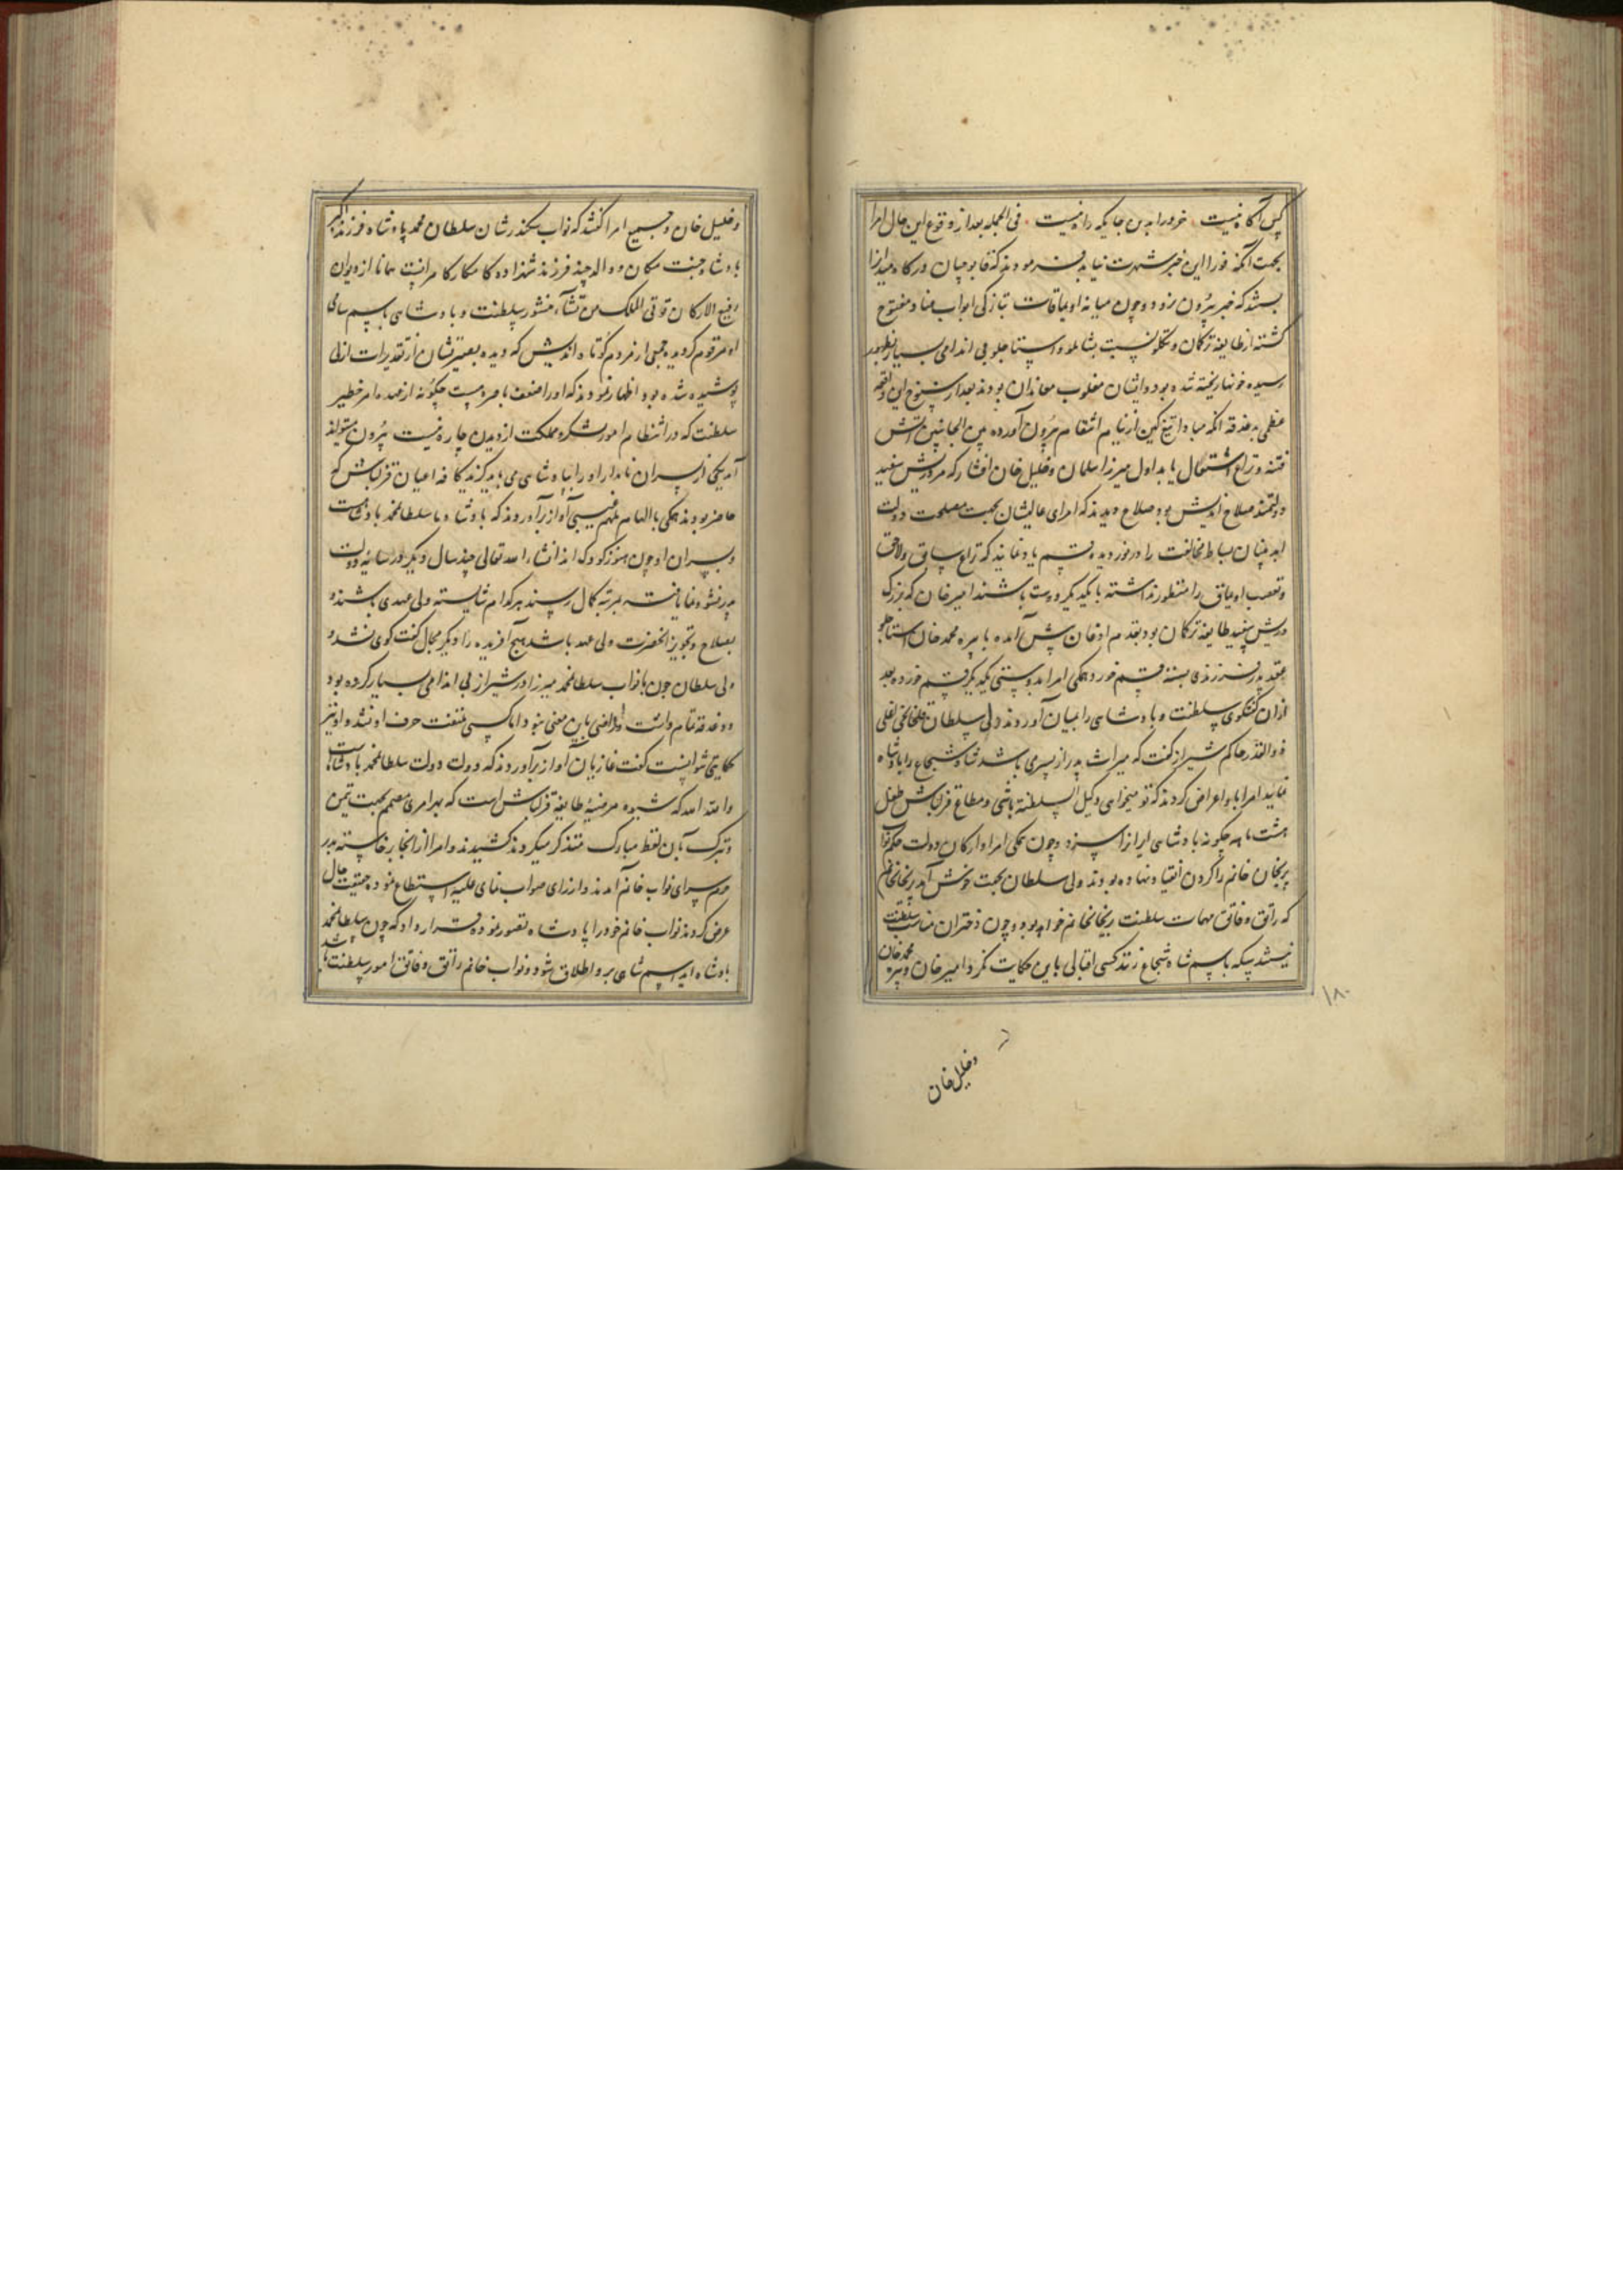 کس آگاه نیست خرد را بدین جایگه راه نیست فی الجمله بعد از وقوع این حال امرا
بجهت آنکه فورا این خبر شهرت نیابد فرمودند که قاپوچیان درگاه میرزا
بستند که خبر بیرون نرود و چون میانه اویماقات تبازگی ابواب عناد مفتوح
گشته از طایفه ترکمان و تکلو نسبت بشاملو و استاجلو بی اندامی بسیار بظهور
رسیده خونها ریخته شده بود و ایشان مغلوب معاندان بودند بعد از سنوح این واقعه
عظمی بدغدقه آنکه مبادا تیغ کین از نیام انتقام بیرون آورده بین الجانبین آتش
فتنه و نزاع اشتعال یابد اول میرزا سلمان و خلیل خان افشار که مرد ریش سفید
دولتمند صلاح اندیش بود صلاح دیدند که امرای عالیشان بجهت مصلحت دولت
ابد بنیان بساط مخالفت را در نوردیده قسم یاد نمایند که نزاع سابق و لاحق
و تعصب اویماق را منظور نداشته با یکدیگر دوست باشند امیر خان که بزرگ
و ریش سفید طایفه ترکمان بود بقدم اذعان پیش آمده با پیره محمد خان استاجلو
عقد پدر فرزندی بسته قسم خورد و همگی امرا بدوستی یکدیگر قسم خورده بعد
از آن گفتگوی سلطنت و پادشاهی را بمیان آوردند ولی سلطان قلخانچی اغلی
ذوالقدر حاکم شیراز گفت که میراث پدر از پسری باشد شاه شجاع را پادشاه
نمایند امرا با او اعراض کردند که تو میخواهی وکیل السلطنه باشی و مطاع قزلباش طفل
هشت ماهه چگونه پادشاهی ایران را سزد و چون همگی امرا و ارکان دولت حکم نواب
پریخان خانم را گردن انقیاد نهاده بودند ولی سلطان بجهت خوش آمد پریخانخانم
که راتق و فاتق مهمات سلطنت پریخانخانم خواهد بود و چون دختران مناسب سلطنت
نیستند سکه باسم شاه شجاع زنند کسی اقبالی باین حکایت نکرد امیر خان و پیره محمد خان
۱۸۰
و خلیل خان
و خلیل خان و جمیع امرا گفتند که نواب سکندرشان سلطان محمد پادشاه فرزند اکبر
پادشاه جنت مکان و والد چند فرزند شهزاده کامکار کامرانست همانا از دیوان
رفیع الارکان توتی الملک من تشاء منشور سلطنت و پادشاهی باسم سامی
او مرقوم گردیده جمعی از مردم کوتاه اندیش که دیده بصیرتشان از تقدیرات ازلی
پوشیده شده بود اظهار نمودند که او را ضعف باصره هست چگونه از عهده امر خطیر
سلطنت که در انتظام امور لشکر و مملکت از دیدن چاره نیست بیرون میتواند
آمد یکی از پسران نامدار او را بپادشاهی می باید گزید کافه اعیان قزلباش که
حاضر بودند همگی بالهام ملهم غیبی آواز برآوردند که پادشاه ما سلطانمحمد پادشاهست
و پسران او چون هنوز کودک اند انشاء الله تعالی چند سال دیگر در سایه دولت
پدر نشو و نما یافته بمرتبه کمال رسند هر کدام شایسته ولی عهدی باشند و
بصلاح و تجویز آنحضرت ولی عهد باشد هیچ آفریده را دیگر مجال گفت گوی نشد و
ولی سلطان چون با نواب سلطانمحمد میرزا در شیراز بی اندامی بسیار کرده بود
و دغدقه تمام داشت و راضی باین معنی نبود اما کسی ملتفت حرف او نشد و او نیز
حکایتی نتوانست گفت غازیان آواز برآوردند که دولت دولت سلطانمحمد پادشاهست
و الله الله که شیوه مرضیه طایفه قزلباش است که بهر امری مصمم بجهت تیمن
و تبرک بآن لفظ مبارک متذکر میگردند کشیدند و امرا از آنجا برخاسته بدر
حرم سرای نواب خانم آمدند و از رای صواب نمای علیه استطلاع نموده حقیقت حال
عرض کردند نواب خانم خود را پادشاه تصور نموده قرار داد که چون سلطانمحمد
پادشاه آید اسم شاهی بر او اطلاق شود و نواب خانم راتق و فاتق امور سلطنت باشد